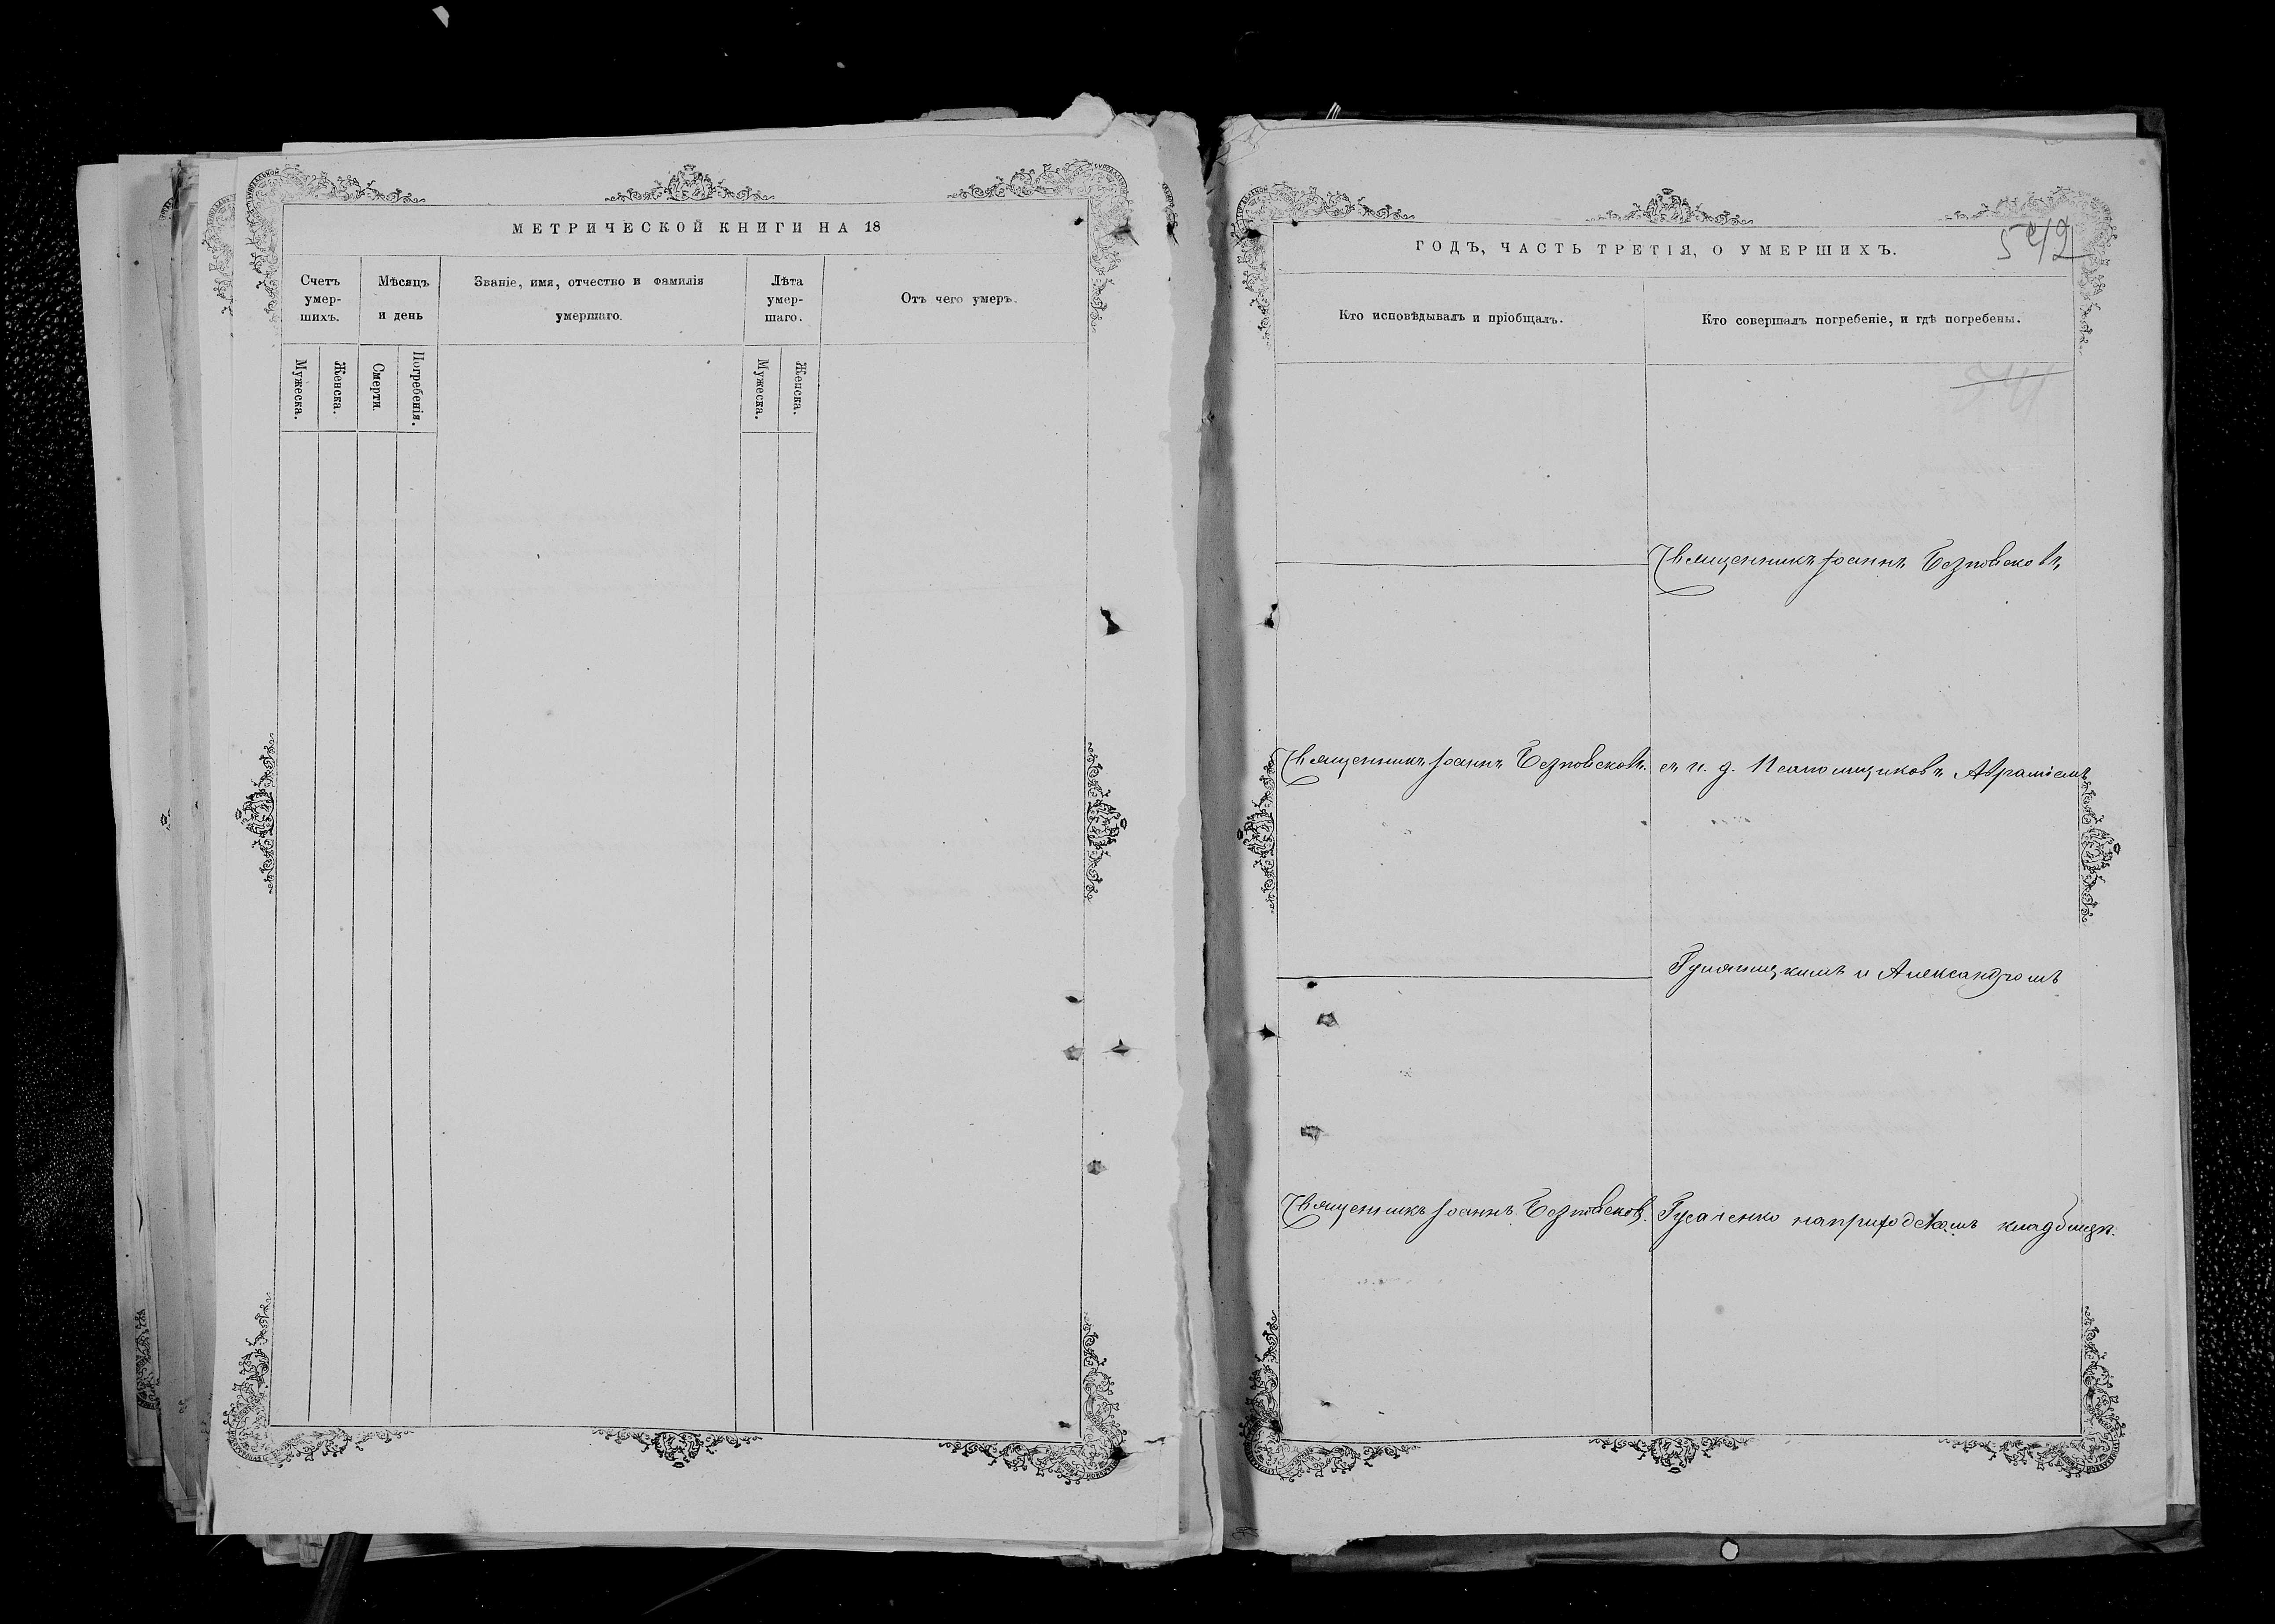 МЕТРИЧЕСКОЙ КНИГИ НА 18
Счетъ умер-шихъ.
Мѣсяцъ и день
Званіе, имя, отчество и фамилія умершаго.
Лѣта умер-шаго.
Отъ чего умеръ.
Мужеска.
Женска.
Смерти.
Погребенія.
Мужеска.
Женска.
ГОДЪ, ЧАСТЬ ТРЕТІЯ, О УМЕРШИХЪ.
542
Кто исповѣдывалъ и пріобщалъ.
Кто совершалъ погребеніе, и гдѣ погребены.
541
Священникъ Іоаннъ
Священникъ Іоаннъ
съ и. д. Псаломщиковъ Авраміемъ
и Александромъ
Священникъ Іоаннъ
Гусаченко на приходскомъ кладбищѣ.